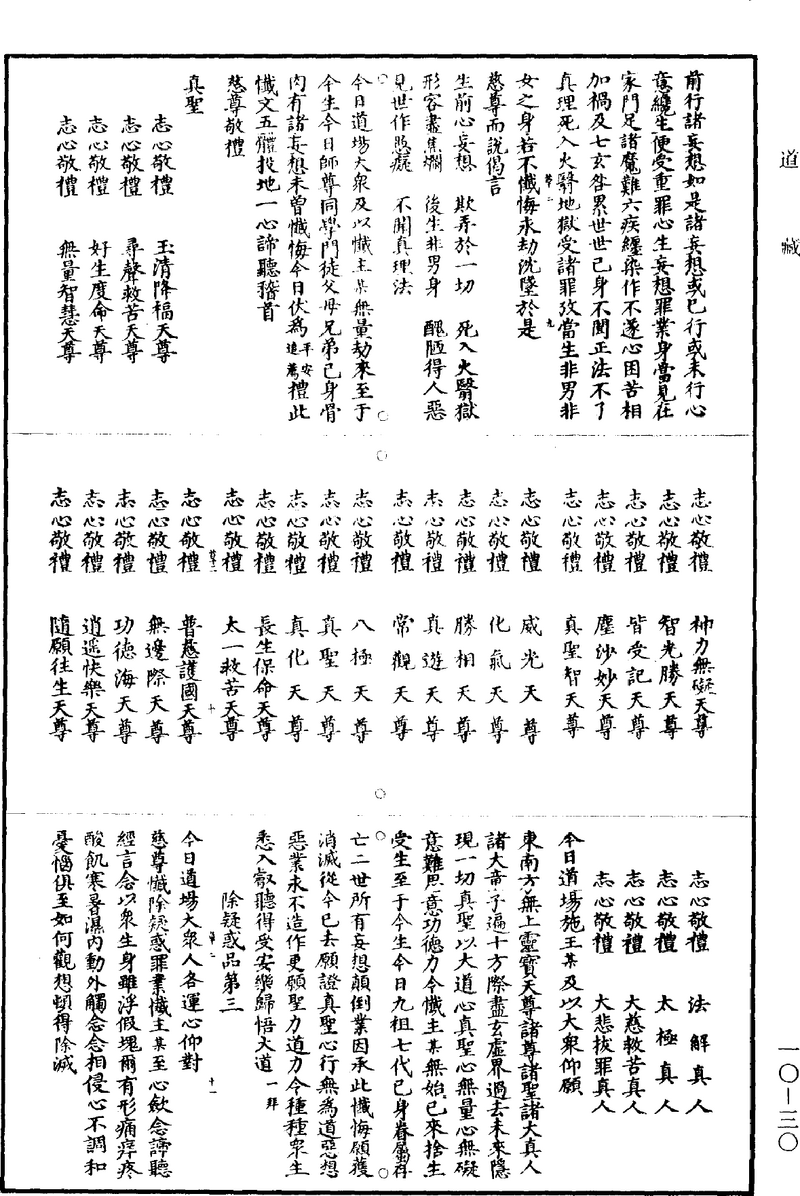 道藏
前行諸妄想如是諸妄想或已行或未行心
意纔生便受重罪心生妄想罪業身當見在
家門足諸魔難六疾纏染作不遂心困苦相
加禍及七玄咎累世世已身不聞正法不了
真理死入火翳地獄受諸罪攷當生非男非
女之身若不懺悔永劫沈墜於是
慈尊而說偈言
生前心妄想 欺弄於一切 死入火翳獄
形容盡焦爛 後生非男身 醜陋得人惡
見世作愚癡 不聞真理法
今日道場大衆及以懺主某無量劫來至于
今生今日師尊同學門徒父母兄弟已身骨
肉有諸妄想未曾懺悔今日伏為平安追薦禮此
懺文五體投地一心諦聽稽首
慈尊敬禮
真聖
志心敬禮 玉清降福天尊
志心敬禮 尋聲救苦天尊
志心敬禮 好生度命天尊
志心敬禮 無量智慧天尊
志心敬禮 神力無礙天尊
志心敬禮 智光勝天尊
志心敬禮 皆受記天尊
志心敬禮 塵沙妙天尊
志心敬禮 真聖智天尊
志心敬禮 威光天尊
志心敬禮 化氣天尊
志心敬禮 勝相天尊
志心敬禮 真遊天尊
志心敬禮 常觀天尊
志心敬禮 八極天尊
志心敬禮 真聖天尊
志心敬禮 真化天尊
志心敬禮 長生保命天尊
志心敬禮 太一救苦天尊
志心敬禮 普慈護國天尊
志心敬禮 無邊際天尊
志心敬禮 功德海天尊
志心敬禮 逍遥快樂天尊
志心敬禮 隨願往生天尊
志心敬禮 法解真人
志心敬禮 太極真人
志心敬禮 大慈救苦真人
志心敬禮 大悲拔罪真人
今日道場施主某及以大衆仰願
東南方無上靈寶天尊諸尊諸聖諸大真人
諸大帝子遍十方際盡玄虛界過去未來隱
現一切真聖以大道心真聖心無量心無礙
意難思意功德力令懺主某無始已來捨生
受生至于今生今日九祖七代已身眷屬存
亡二世所有妄想顛倒業因承此懺悔願獲
消滅從今已去願證真聖心行無為道惡想
惡業永不造作更願聖力道力令種種衆生
悉入叡聽得受安樂歸悟大道一拜
除疑惑品第三
今日道場大衆人各運心仰對
慈尊懺除疑惑罪業懺主某至心歛念諦聽
經言念以衆生身雖浮假塊爾有形痛痒疼
酸飢寒暑濕内動外觸念念相侵心不調和
憂惱俱至如何觀想頓得除滅
一〇—三〇